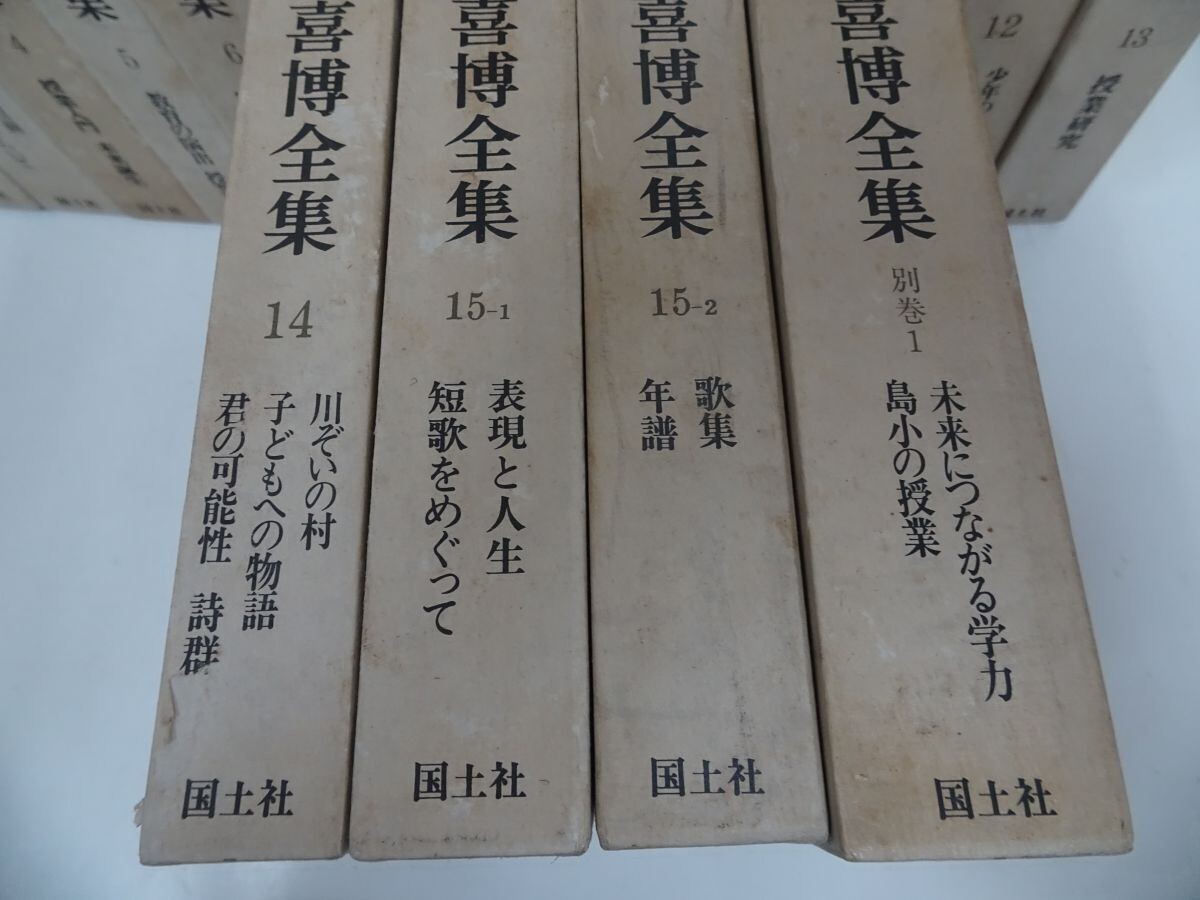 喜博全集
14
川ぞいの村
子どもへの物語
君の可能性 詩群
国土社
喜博全集
15-1
表現と人生
短歌をめぐって
国土社
喜博全集
15-2
歌集
年譜
国土社
喜博全集
別巻1
未来につながる学力
島小の授業
国土社
4
5
6
12
13
授業研究